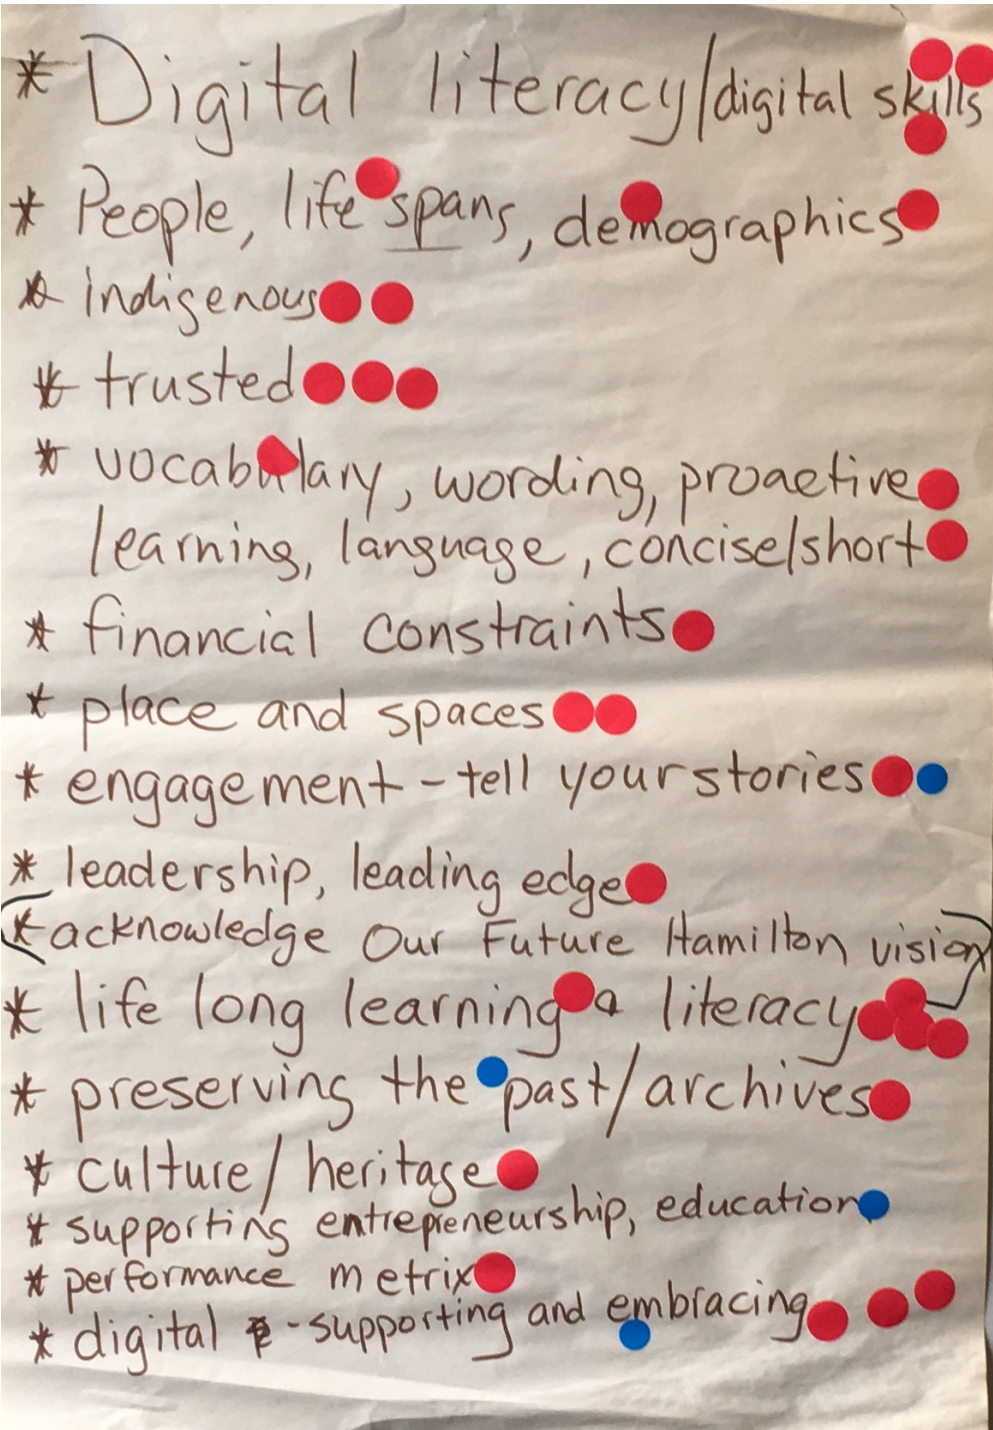 * Digital literacy/digital skills
* People, life spans, demographics
* indigenous
* trusted
* vocabulary, wording, proactive
learning, language, concise/short
* financial constraints
* place and spaces
* engagement - tell your stories
* leadership, leading edge
* acknowledge Our Future Hamilton vision
* life long learning & literacy
* preserving the past/archives
* culture/heritage
* supporting entrepreneurship, education
* performance metrix
* digital - supporting and embracing